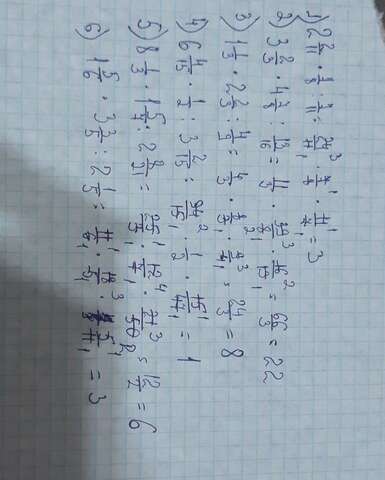 1) 2 2/11 · 1/8 : 1/11 = 24/11 · 1/8 · 11/1 = 3
2) 3 2/3 · 4 7/8 : 13/16 = 11/3 · 39/8 · 16/13 = 66/3 = 22
3) 1 1/3 · 2 2/3 : 4/9 = 4/3 · 8/3 · 9/4 = 24/3 = 8
4) 6 4/15 · 1/2 : 3 2/15 = 94/15 · 1/2 · 15/47 = 1
5) 8 1/3 · 1 5/7 : 2 8/21 = 25/3 · 12/7 · 21/50 = 12/2 = 6
6) 1 5/6 · 3 3/5 : 2 1/5 = 11/6 · 18/5 · 5/11 = 3